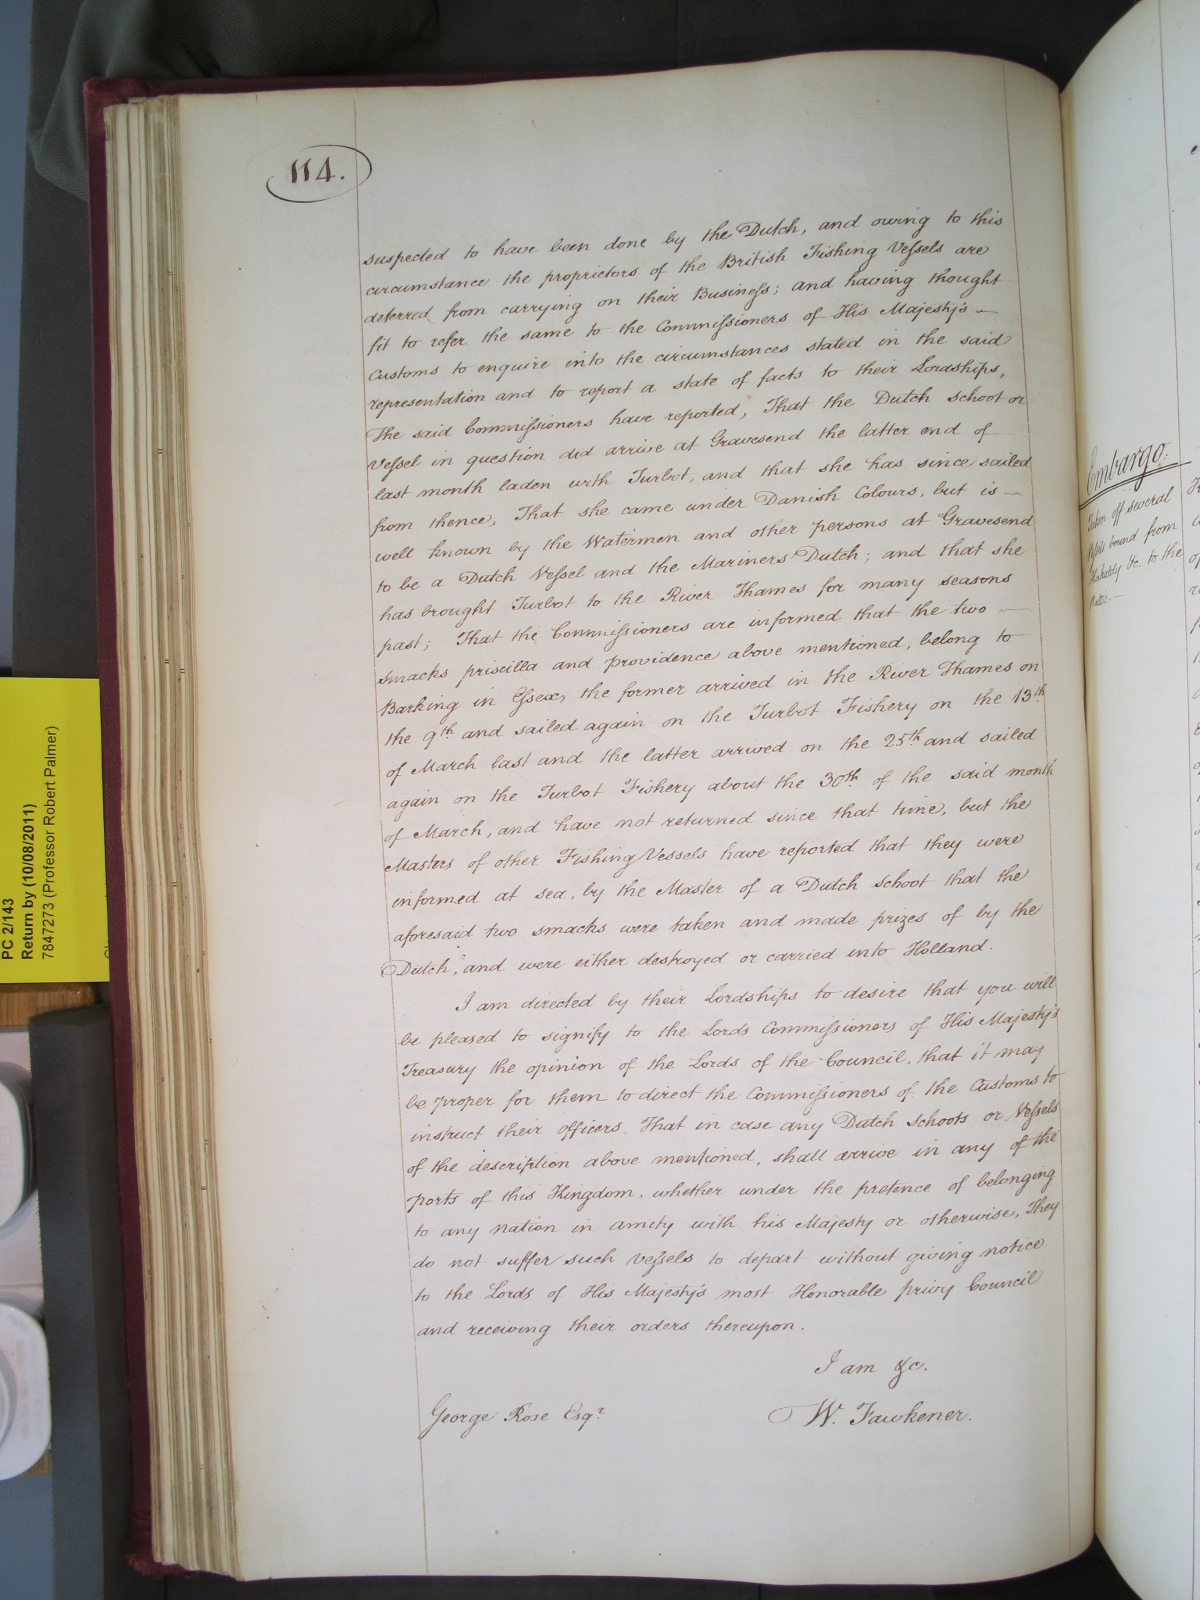 114.
suspected to have been done by the Dutch, and owing to this
circumstance the proprietors of the British Fishing Vessels are
deterred from carrying on their Business; and having thought
fit to refer the same to the Commissioners of His Majesty's —
Customs to enquire into the circumstances stated in the said
representation and to report a state of facts to their Lordships,
The said Commissioners have reported, That the Dutch Schoot or
Vessel in question did arrive at Gravesend the latter end of
last month laden with Turbot, and that she has since sailed
from thence, That she came under Danish Colours, but is —
well known by the Watermen and other persons at Gravesend
to be a Dutch Vessel and the Mariners Dutch; and that she
has brought Turbot to the River Thames for many seasons
past; That the Commissioners are informed that the two —
smacks priscilla and providence above mentioned, belong to
Barking in Essex, the former arrived in the River Thames on
the 9th and sailed again on the Turbot Fishery on the 13th
of March last and the latter arrived on the 25th and sailed
again on the Turbot Fishery about the 30th of the said month
of March, and have not returned since that time, but the
Masters of other Fishing Vessels have reported that they were
informed at sea, by the Master of a Dutch schoot that the
aforesaid two smacks were taken and made prizes of by the
Dutch, and were either destroyed or carried into Holland.
I am directed by their Lordships to desire that you will
be pleased to signify to the Lords Commissioners of His Majesty's
Treasury the opinion of the Lords of the Council, that it may
be proper for them to direct the Commissioners of the Customs to
instruct their officers, That in case any Dutch Schoots or Vessels
of the description above mentioned, shall arrive in any of the
ports of this Kingdom, whether under the pretence of belonging
to any nation in amity with his Majesty or otherwise, They
do not suffer such vessels to depart without giving notice
to the Lords of His Majesty's most Honorable privy Council
and receiving their orders thereupon.
I am &c.
George Rose Esqr. W. Fawkener.
Embargo.
Taken off several
bound from
&c. to the
PC 2/143
Return by (10/08/2011)
7847273 (Professor Robert Palmer)